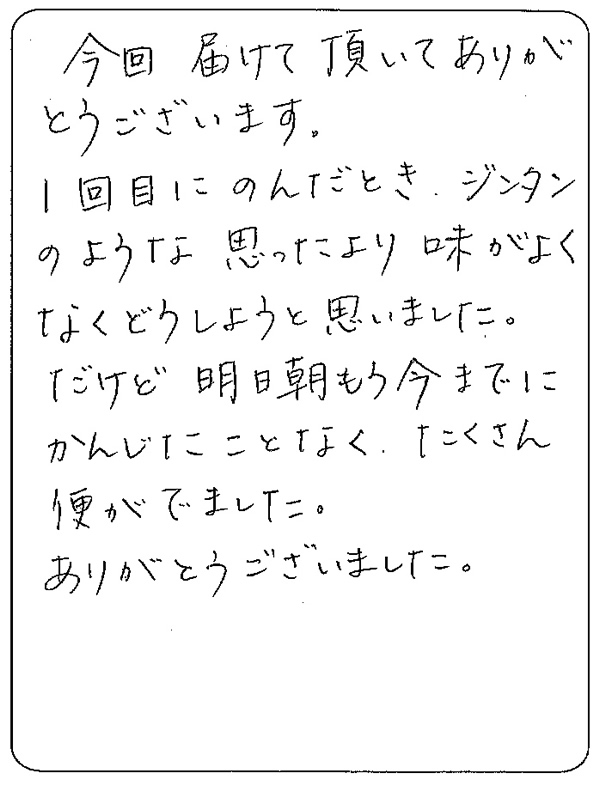 今回 届けて頂いてありが
とうございます。
1回目にのんだとき、ジンタン
のような 思ったより 味がよく
なくどうしようと思いました。
だけど 明日朝もう今までに
かんじたことなく、たくさん
便がでました。
ありがとうございました。